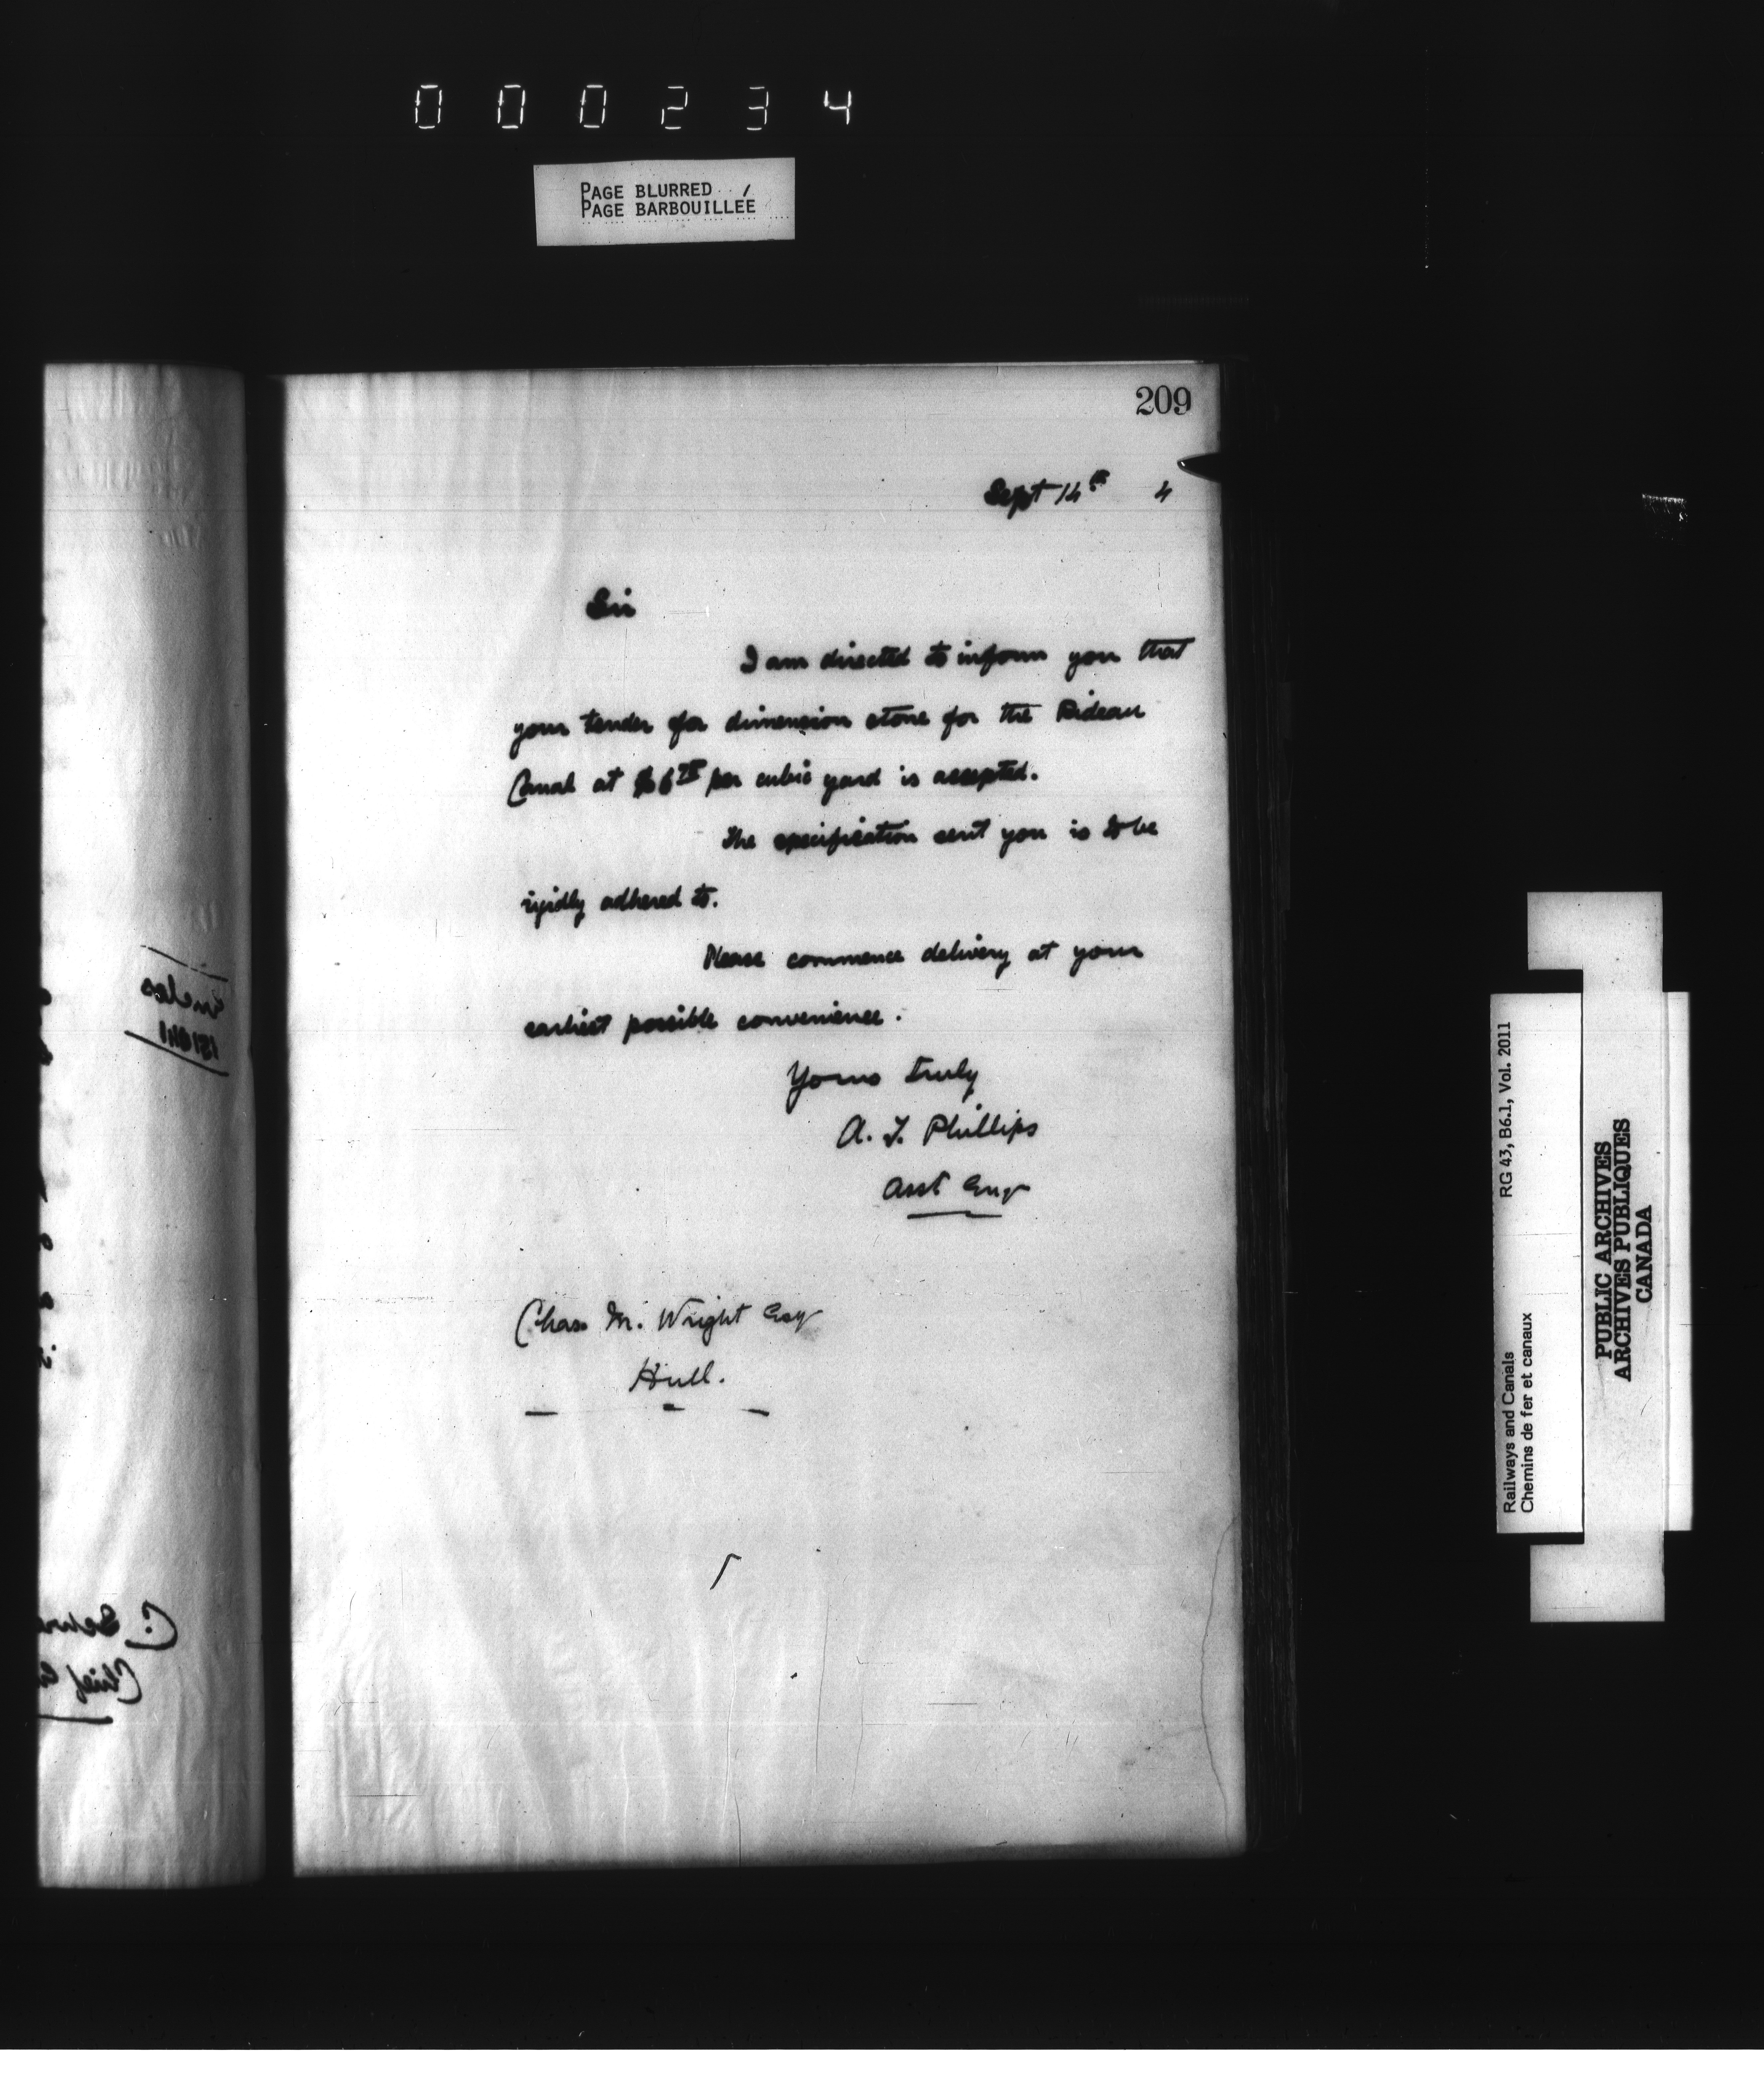 000234
PAGE BLURRED
PAGE BARBOUILLÉE
209
Sept 14th 4
Sir
I am directed to inform you that
your tender for dimension stone for the Rideau
Canal at $6 per cubic yard is accepted.
The specification sent you is to be
rigidly adhered to.
Please commence delivery at your
earliest possible convenience.
Yours truly
A. T. Phillips
Asst Engr
Chas M. Wright Esq
Hull.
C.
Chief
RG 43, B6.1, Vol. 2011
Railways and Canals
Chemins de fer et canaux
PUBLIC ARCHIVES
ARCHIVES PUBLIQUES
CANADA